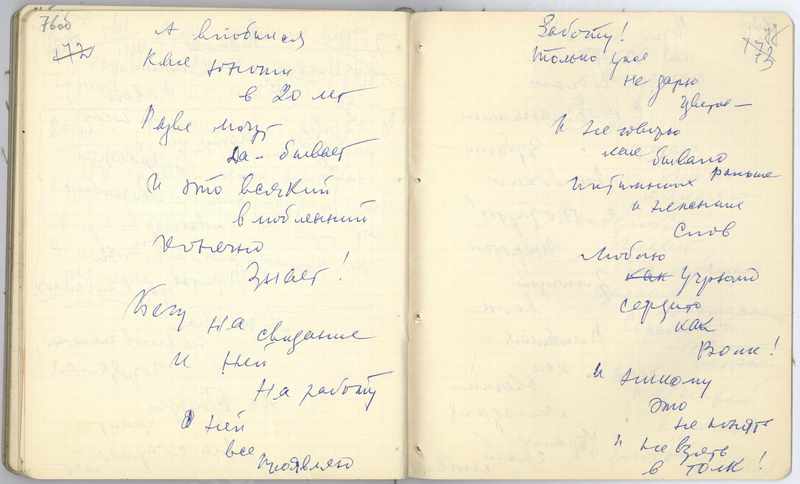 А влюбился
Как юноша
в 20 лет
Разве могут
Да – бывает
И это всякий
влюбленный
Конечно
Знает!
Бегу на свидание
К ней
На работу
О ней
все проявляю
172
Заботу!
Только уже
не дарю
Цветов –
И не говорю
как бывало раньше
Интимных
и нежных
слов
Люблю
как Угрюмо
сердито
как
Волк!
И никому
это
не понять
и не взять
в толк!